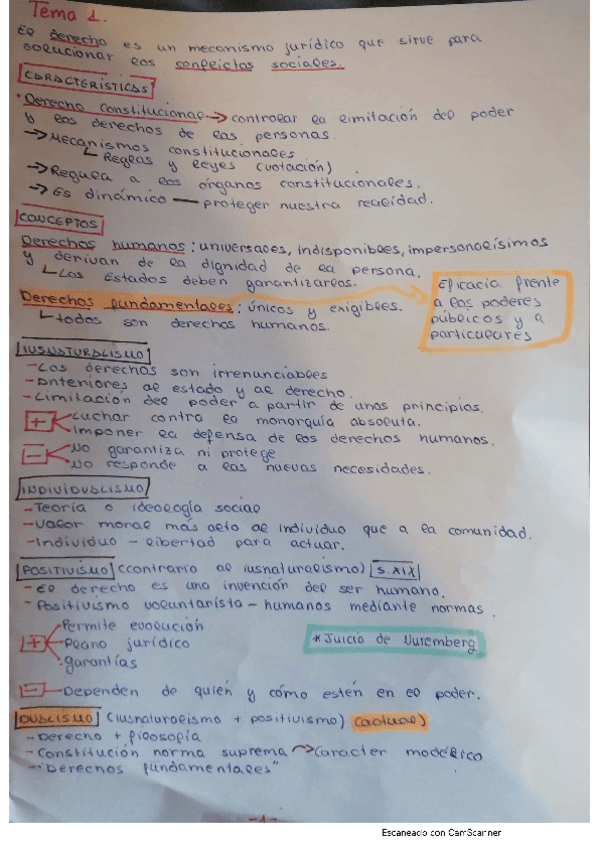 Tema 1.
El derecho es un mecanismo jurídico que sirve para
solucionar los conflictos sociales.
CARACTERÍSTICAS
· Derecho constitucional → controlar la limitación del poder
y los derechos de las personas.
→ Mecanismos constitucionales
↳ Reglas y leyes (votación)
→ Regula a los órganos constitucionales.
→ Es dinámico — proteger nuestra realidad.
CONCEPTOS
Derechos humanos: universales, indisponibles, impersonalísimos
y derivan de la dignidad de la persona.
↳ Los Estados deben garantizarlos.
Derechos fundamentales: únicos y exigibles.
↳ todos son derechos humanos.
Eficacia frente
a los poderes
públicos y a
particulares
IUSNATURALISMO
- Los derechos son irrenunciables
- Anteriores al estado y al derecho.
- Limitación del poder a partir de unos principios.
+ Luchar contra la monarquía absoluta.
Imponer la defensa de los derechos humanos.
- No garantiza ni protege
No responde a las nuevas necesidades.
INDIVIDUALISMO
- Teoría o ideología social
- Valor moral más alto al individuo que a la comunidad.
- Individuo - libertad para actuar.
POSITIVISMO (contrario al iusnaturalismo) S.XIX
- El derecho es una invención del ser humano.
- Positivismo voluntarista - humanos mediante normas.
+ Permite evolución
Plano jurídico
garantías
* Juicio de Nuremberg
- Dependen de quién y cómo estén en el poder.
DUALISMO (iusnaturalismo + positivismo) (actual)
- Derecho + filosofía
- Constitución norma suprema → Caracter modélico
- "Derechos fundamentales"
-1-
Escaneado con CamScanner